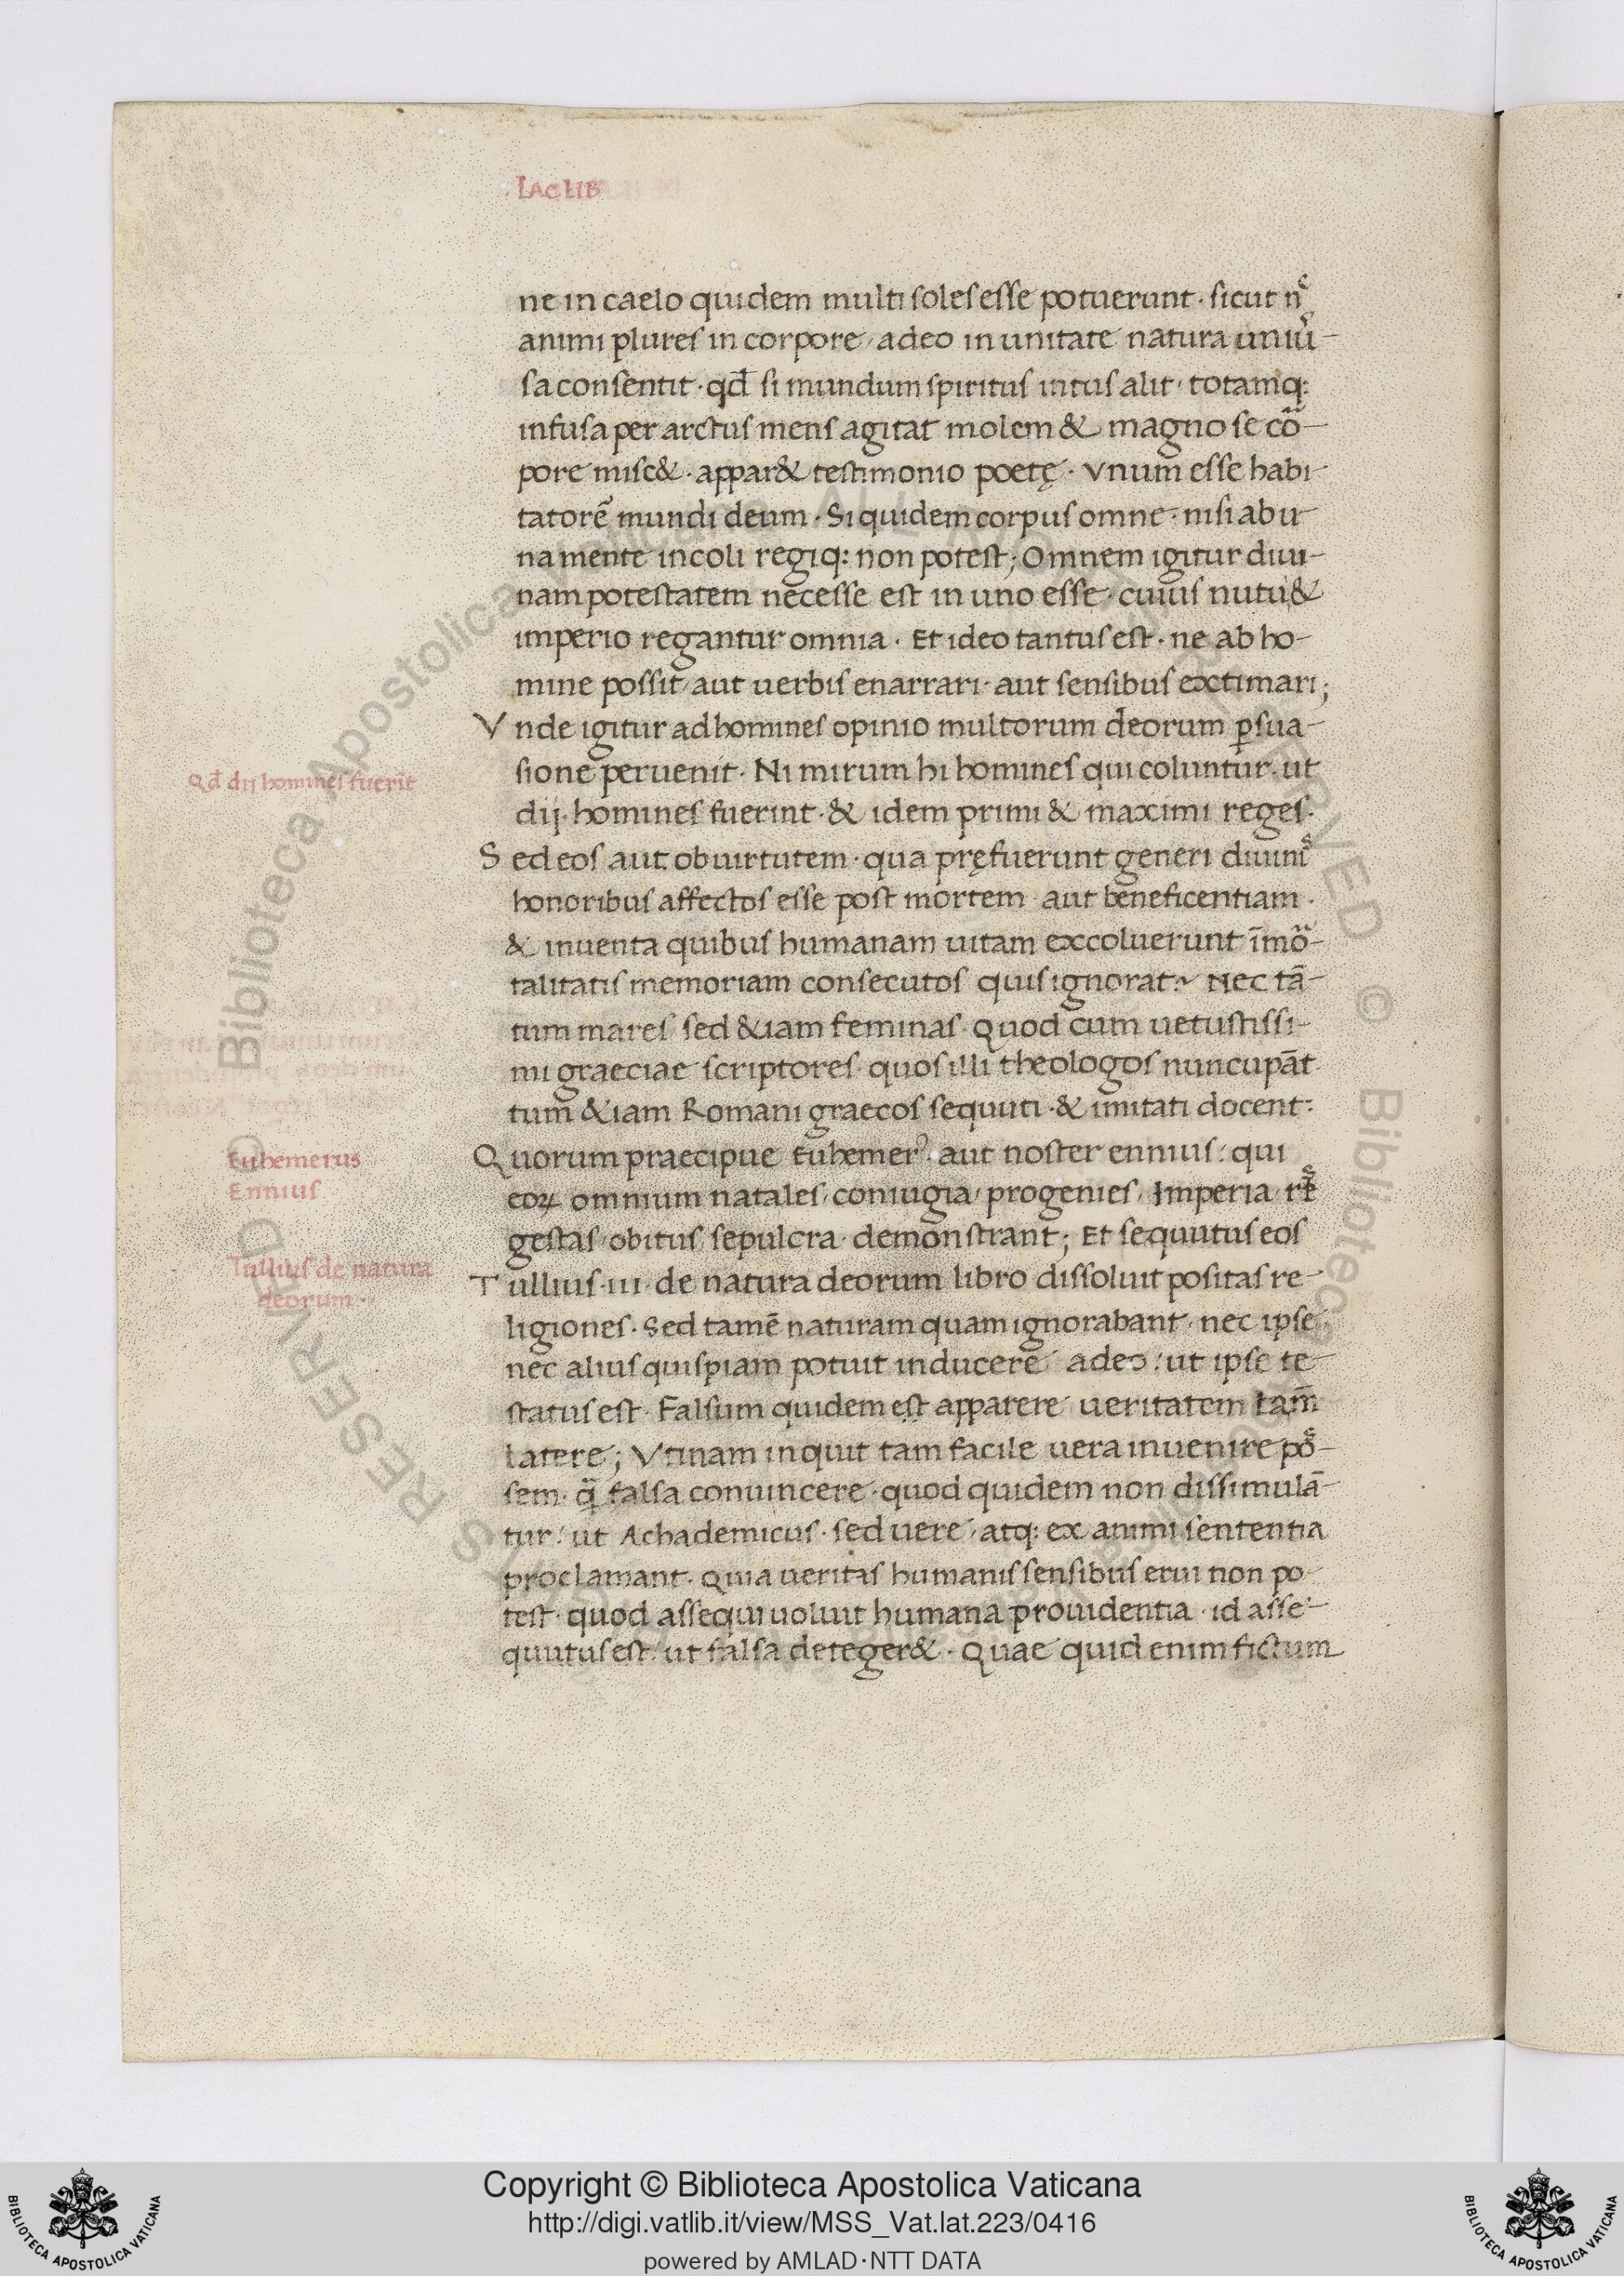 LAC LIB
ne in caelo quidem multi soles esse potuerunt · sicut nͤ
animi plures in corpore, adeo in unitate natura uniũ-
sa consentit · qđ si mundum spiritus intus alit, totamq:
infusa per arctus mens agitat molem & magno se cõ-
pore misc& · appar& testimonio poetę · Vnum esse habi-
tatorẽ mundi deum · Si quidem corpus omne · nisi ab u-
na mente incoli regiq: non potest; Omnem igitur diui-
nam potestatem necesse est in uno esse · cuius nutu &
imperio regantur omnia · Et ideo tantus est · ne ab ho-
mine possit, aut uerbis enarrari · aut sensibus exctimari;
Vnde igitur ad homines opinio multorum deorum ꝑsua-
sione peruenit · Ni mirum hi homines qui coluntur · ut
Qđ dii homines fuerīt
dij · homines fuerint · & idem primi & maximi reges ·
Sed eos aut ob uirtutem · qua pręfuerunt generi diuinͥͤ
honoribus affectos esse post mortem · aut beneficentiam ·
& inuenta quibus humanam uitam exccoluerunt īmõ-
talitatis memoriam consecutos quis ignorat? Nec tã-
tum mares sed &iam feminas · Quod cum uetustissi-
mi graeciae scriptores · quos illi theologos nuncupãt
tum &iam Romani graecos sequuti · & imitati docent:
Quorum praecipue Euhemerꝰ · aut noster ennius: qui
Euhemerus
Ennius
eoꝝ omnium natales, coniugia, progenies, Imperia, rēͤ
gestas, obitus, sepulcra · demonstrant; Et sequutus eos
Tullius · iii · de natura deorum libro dissoluit positas re-
Tullius de natura
deorum ·
ligiones · Sed tamẽ naturam quam ignorabant, nec ipse
nec alius quispiam potuit inducere adeo: ut ipse te-
status est · Falsum quidem est apparere ueritatem tam̃
latere; Vtinam inquit tam facile uera inuenire poͤ-
sem · q̃ falsa conuincere · quod quidem non dissimulã-
tur: ut Achademicus · sed uere, atq: ex animi sententia
proclamant · Quia ueritas humanis sensibus erui non po-
test · quod assequi uoluit humana prouidentia · id asse-
quutus est: ut falsa deteger& · Quae quid enim fictum
Copyright © Biblioteca Apostolica Vaticana
http://digi.vatlib.it/view/MSS_Vat.lat.223/0416
powered by AMLAD·NTT DATA
BIBLIOTECA APOSTOLICA VATICANA
BIBLIOTECA APOSTOLICA VATICANA